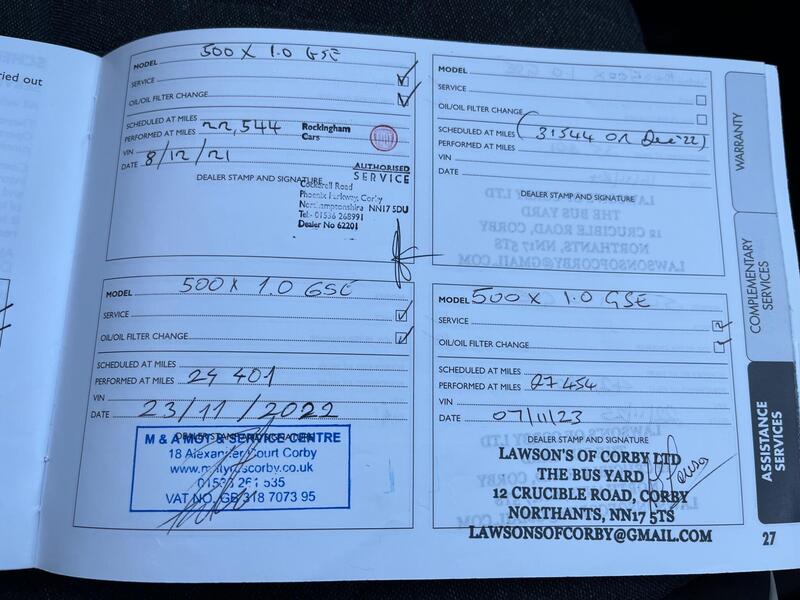 ried out
MODEL 500 X 1.0 GSE
SERVICE
OIL/OIL FILTER CHANGE
SCHEDULED AT MILES
PERFORMED AT MILES 22,544
Rockingham
Cars
VIN
DATE 8/12/21
AUTHORISED
SERVICE
DEALER STAMP AND SIGNATURE
Cockerell Road
Phoenix Parkway, Corby
Northamptonshire NN17 5DU
Tel:- 01536 268991
Dealer No 62201
MODEL
SERVICE
OIL/OIL FILTER CHANGE
SCHEDULED AT MILES (31544 OR Dec 22)
PERFORMED AT MILES
VIN
DATE
DEALER STAMP AND SIGNATURE
MODEL 500 X 1.0 GSE
SERVICE
OIL/OIL FILTER CHANGE
SCHEDULED AT MILES
PERFORMED AT MILES 24 401
VIN
DATE 23/11/2022
DEALER STAMP AND SIGNATURE
M & A MOT & SERVICE CENTRE
18 Alexander Court Corby
01536 261 535
VAT NO. GB 318 7073 95
MODEL 500 X 1.0 GSE
SERVICE
OIL/OIL FILTER CHANGE
SCHEDULED AT MILES
PERFORMED AT MILES 27454
VIN
DATE 07/11/23
DEALER STAMP AND SIGNATURE
LAWSON'S OF CORBY LTD
THE BUS YARD
12 CRUCIBLE ROAD, CORBY
NORTHANTS, NN17 5TS
LAWSONSOFCORBY@GMAIL.COM
WARRANTY
COMPLEMENTARY
SERVICES
ASSISTANCE
SERVICES
27